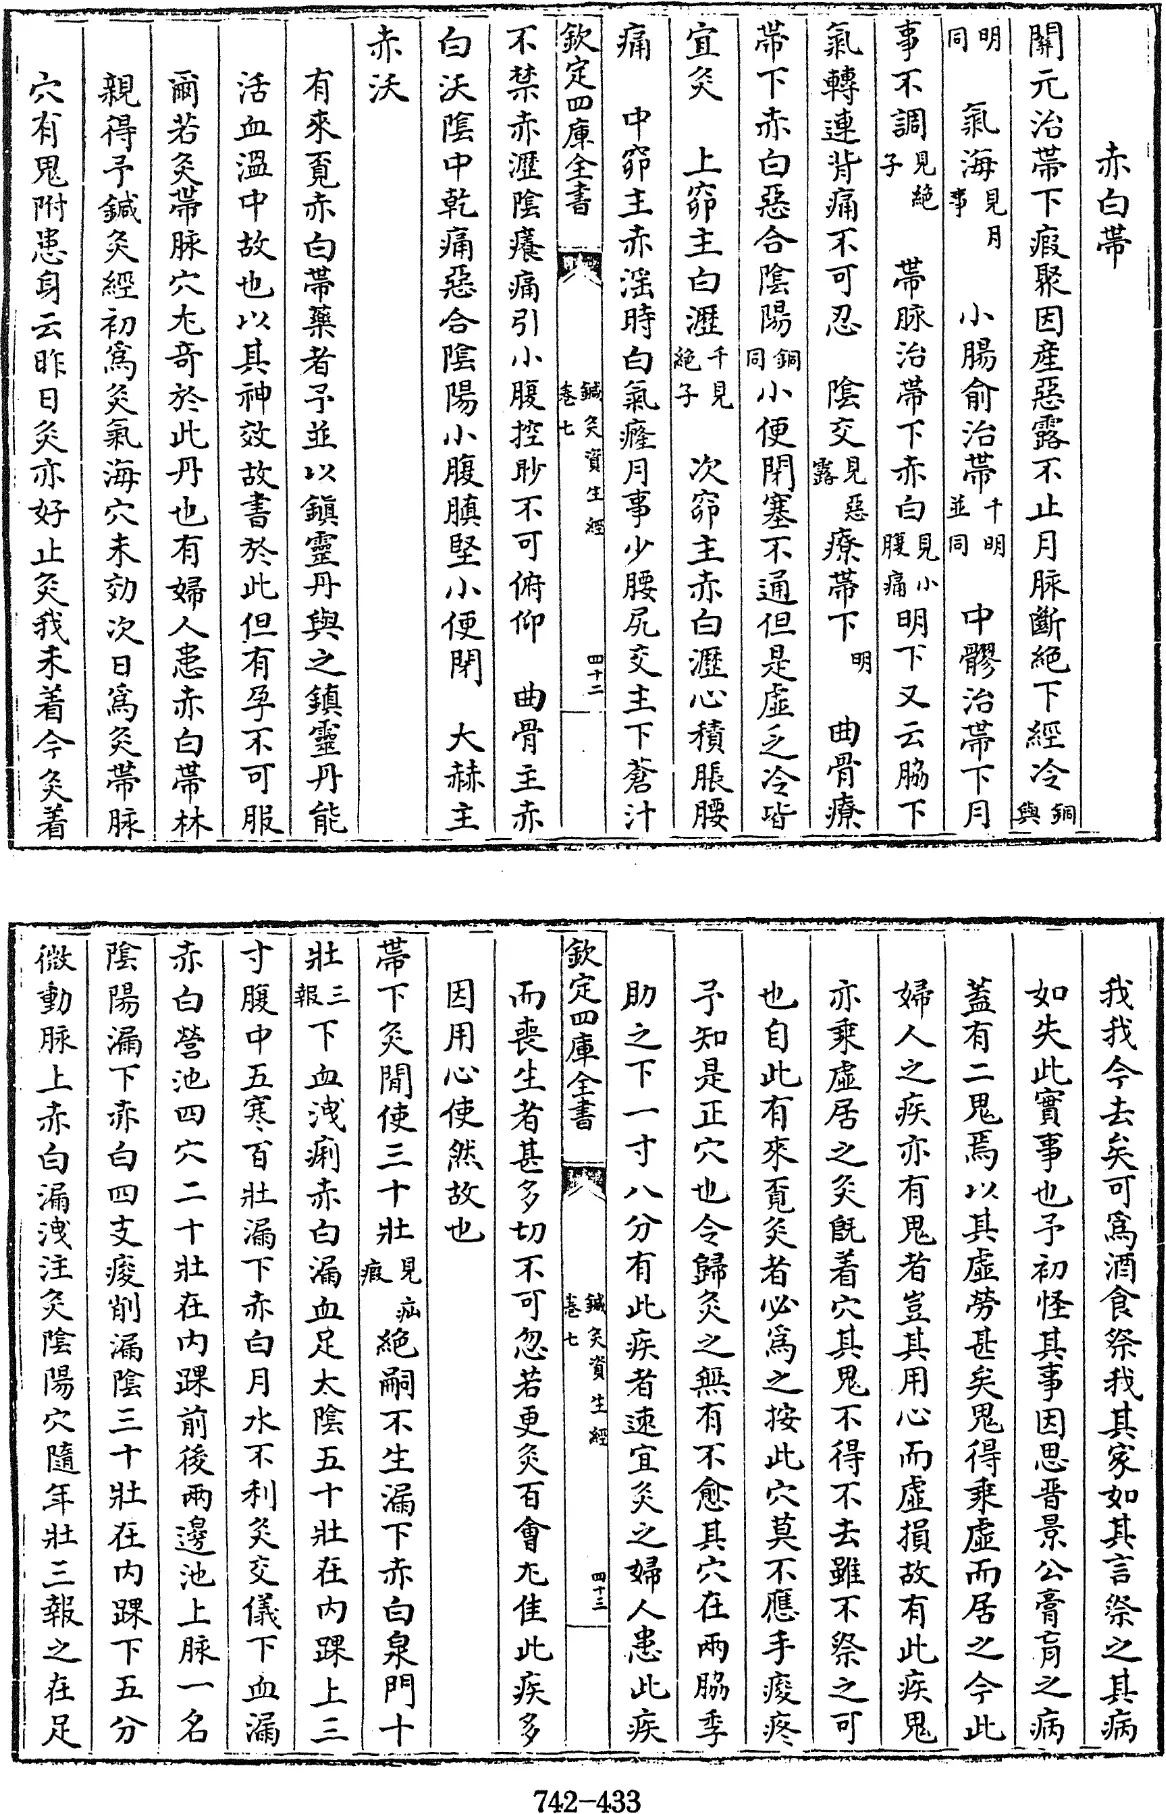 赤白帶
關元治帶下瘕聚因産惡露不止月脉斷絶下經冷銅與
明同 氣海見月事 小腸俞治帶千明並同 中髎治帶下月
事不調見絶子 帶脉治帶下赤白見小腹痛明下又云脇下
氣轉連背痛不可忍 陰交見惡露療帶下明 曲骨療
帶下赤白惡合陰陽銅同小便閉塞不通但是虛乏冷皆
宜灸 上窌主白瀝千見絶子 次窌主赤白瀝心積脹腰
痛 中窌主赤淫時白氣癃月事少腰尻交主下蒼汁
欽定四庫全書 鍼灸資生經 卷七 四十二
不禁赤瀝陰癢痛引小腹控䏚不可俯仰 曲骨主赤
白沃陰中乾痛惡合陰陽小腹䐜堅小便閉 大赫主
赤沃
有來覓赤白帶藥者予並以鎭靈丹與之鎮靈丹能
活血溫中故也以其神效故書於此但有孕不可服
爾若灸帶脉穴尤奇於此丹也有婦人患赤白帶林
親得予鍼灸經初爲灸氣海穴未効次日爲灸帶脉
穴有鬼附患身云昨日灸亦好止灸我未着今灸着
我我今去矣可爲酒食祭我其家如其言祭之其病
如失此實事也予初怪其事因思晉景公膏肓之病
葢有二鬼焉以其虛勞甚矣鬼得乘虛而居之今此
婦人之疾亦有鬼者豈其用心而虛損故有此疾鬼
亦乘虛居之灸旣着穴其鬼不得不去雖不祭之可
也自此有來覓灸者必爲之按此穴莫不應手痠疼
予知是正穴也令歸灸之無有不愈其穴在兩脇季
肋之下一寸八分有此疾者速宜灸之婦人患此疾
欽定四庫全書 鍼灸資生經 卷七 四十三
而喪生者甚多切不可忽若更灸百會尤佳此疾多
因用心使然故也
帶下灸閒使三十壯見疝瘕絶嗣不生漏下赤白泉門十
壯三報下血洩痢赤白漏血足太陰五十壯在内踝上三
寸腹中五寒百壯漏下赤白月水不利灸交儀下血漏
赤白營池四穴二十壯在内踝前後兩邊池上脉一名
陰陽漏下赤白四支痠削漏陰三十壯在内踝下五分
微動脉上赤白漏洩注灸陰陽穴隨年壯三報之在足
742-433